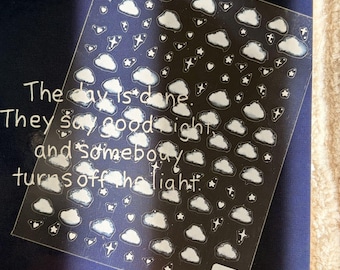 The day is done
They say good night,
and somebody
turns off the light.